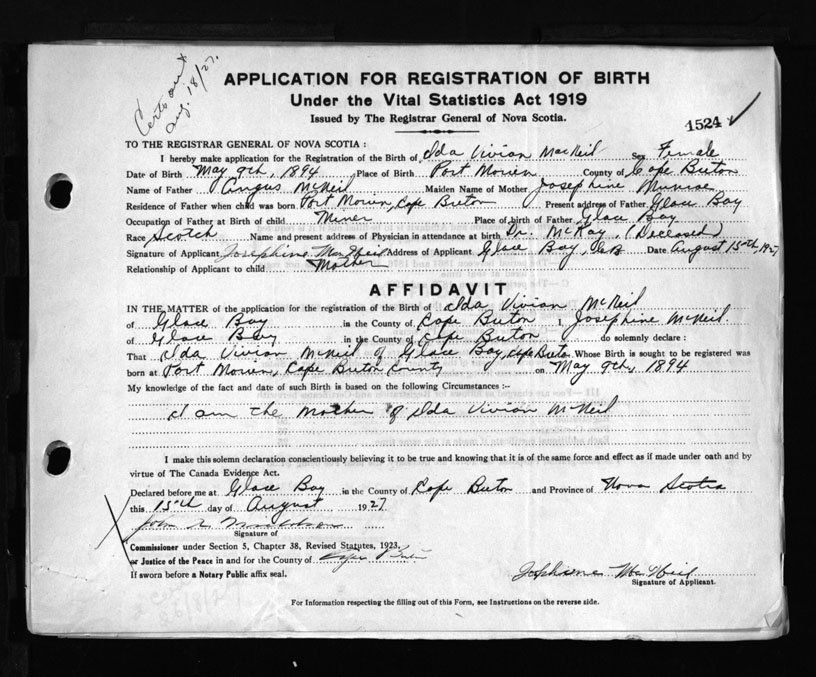 Certs out
Aug. 18/27.
APPLICATION FOR REGISTRATION OF BIRTH
Under the Vital Statistics Act 1919
Issued by The Registrar General of Nova Scotia.
1524 ✓
TO THE REGISTRAR GENERAL OF NOVA SCOTIA :
I hereby make application for the Registration of the Birth of Ida Vivian MacNeil Sex Female
Date of Birth May 9th, 1894 Place of Birth Port Morien County of Cape Breton
Name of Father Angus McNeil Maiden Name of Mother Josephine Munroe
Residence of Father when child was born Port Morien, Cape Breton Present address of Father Glace Bay
Occupation of Father at Birth of child Miner Place of birth of Father Glace Bay
Race Scotch Name and present address of Physician in attendance at birth Dr. McKay, (Deceased)
Signature of Applicant Josephine MacNeil Address of Applicant Glace Bay, C.B. Date August 15th, 1927
Relationship of Applicant to child Mother
AFFIDAVIT
IN THE MATTER of the application for the registration of the Birth of Ida Vivian McNeil
of Glace Bay in the County of Cape Breton I Josephine McNeil
of Glace Bay in the County of Cape Breton do solemnly declare :
That Ida Vivian McNeil of Glace Bay, Cape Breton Whose Birth is sought to be registered was
born at Port Morien, Cape Breton County on May 9th, 1894
My knowledge of the fact and date of such Birth is based on the following Circumstances :--
I am the mother of Ida Vivian McNeil
I make this solemn declaration conscientiously believing it to be true and knowing that it is of the same force and effect as if made under oath and by
virtue of The Canada Evidence Act.
Declared before me at Glace Bay in the County of Cape Breton and Province of Nova Scotia
this 15th day of August 1927
John
Signature of
Commissioner under Section 5, Chapter 38, Revised Statutes, 1923,
or Justice of the Peace in and for the County of Cape Breton
If sworn before a Notary Public affix seal.
Josephine MacNeil
Signature of Applicant.
For Information respecting the filling out of this Form, see Instructions on the reverse side.